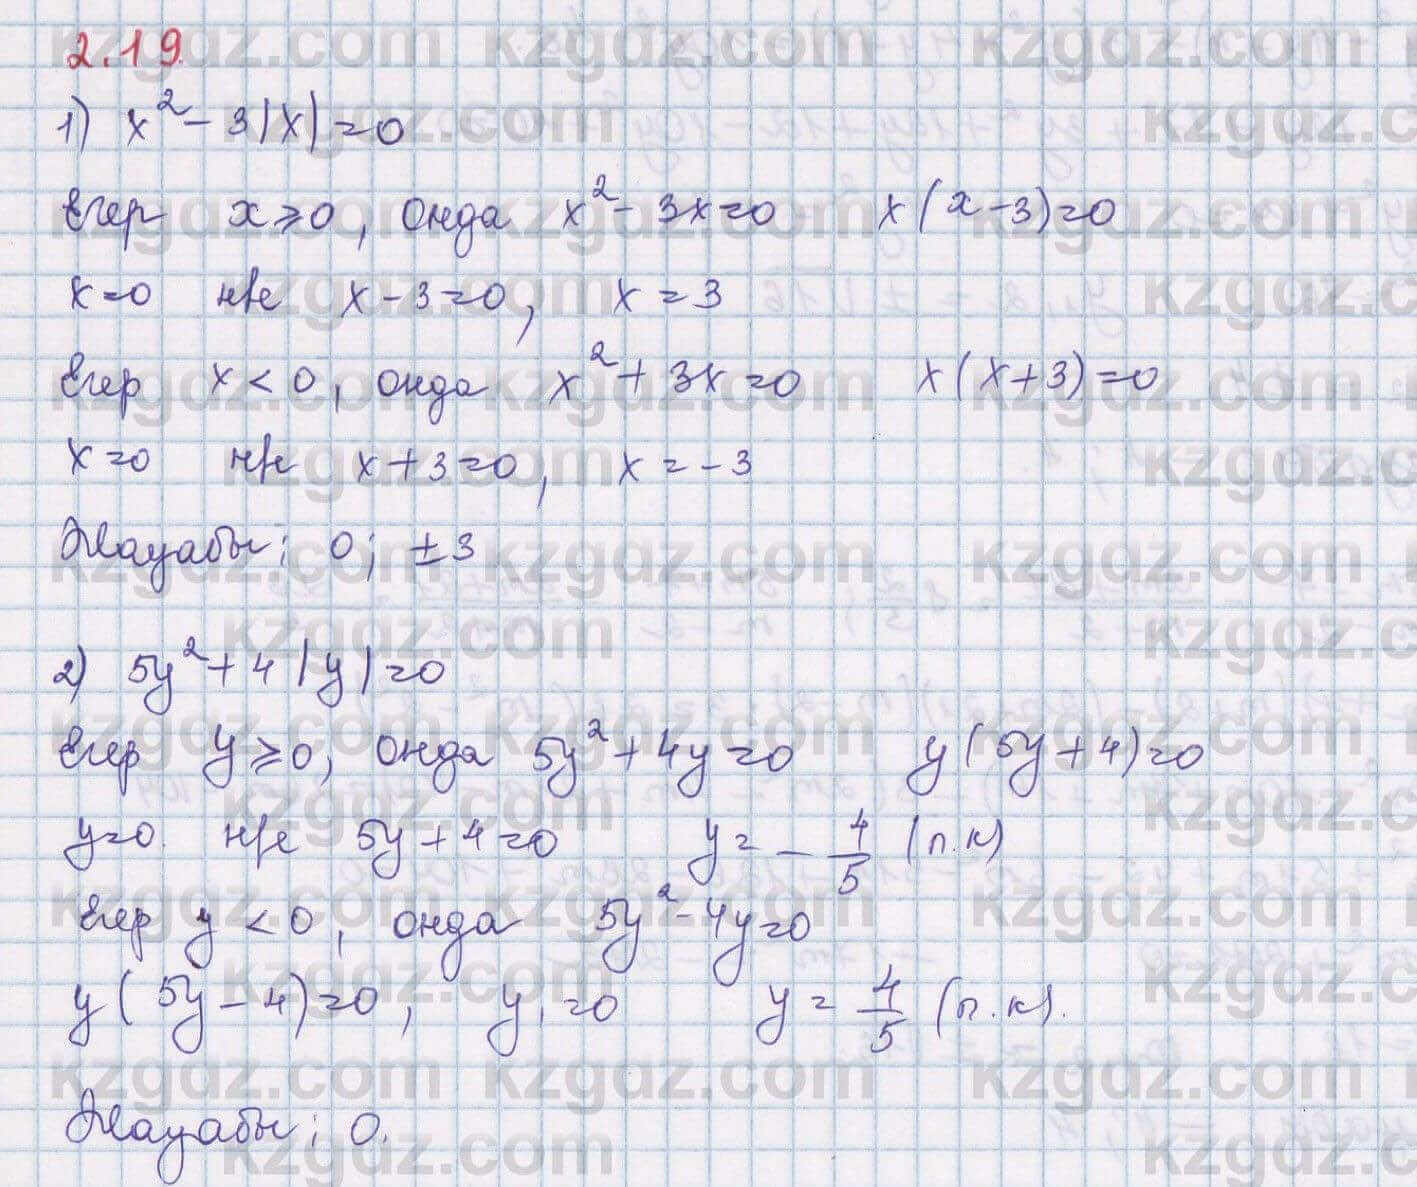 2.19.
1) x² - 3|x| = 0
Егер x ≥ 0, онда x² - 3x = 0 x(x-3) = 0
x = 0 н/е x - 3 = 0, x = 3
Егер x < 0, онда x² + 3x = 0 x(x+3) = 0
x = 0 н/е x + 3 = 0, x = -3
Жауабы: 0; ±3
2) 5y² + 4|y| = 0
Егер y ≥ 0, онда 5y² + 4y = 0 y(5y+4) = 0
y = 0. н/е 5y + 4 = 0 y = -4/5 (п.к)
Егер y < 0, онда 5y² - 4y = 0
y(5y-4) = 0, y₁ = 0 y = 4/5 (п.к).
Жауабы: 0.
kzgdz.com